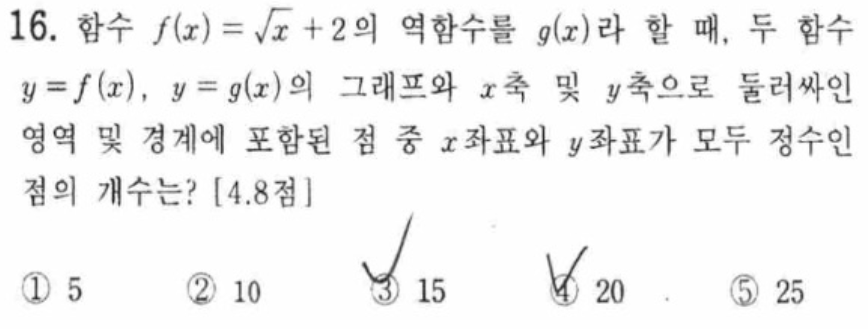 16. 함수 f(x)=√x+2의 역함수를 g(x)라 할 때, 두 함수
y=f(x), y=g(x)의 그래프와 x축 및 y축으로 둘러싸인
영역 및 경계에 포함된 점 중 x좌표와 y좌표가 모두 정수인
점의 개수는? [4.8점]
① 5 ② 10 ③ 15 ④ 20 ⑤ 25